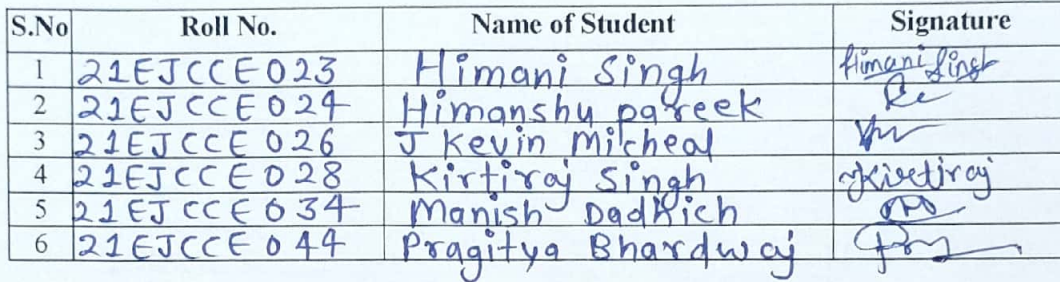 S.No Roll No. Name of Student Signature
1 21EJCCE023 Himani Singh Himani Singh
2 21EJCCE024 Himanshu pareek
3 21EJCCE026 J Kevin Micheal
4 21EJCCE028 Kirtiraj Singh Kirtiraj
5 21EJCCE034 Manish Dadhich
6 21EJCCE044 Pragitya Bhardwaj